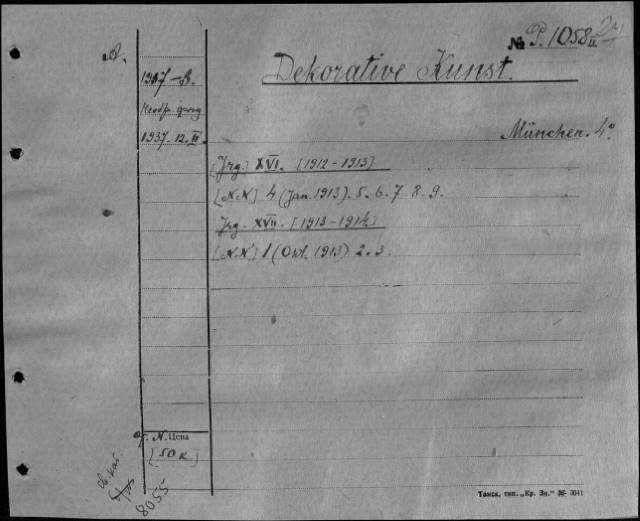 № P. 1058 II
Dekorative Kunst.
München. 4°
1937-В.
Необр. фонд
1937. 12. II.
[Jrg.] XVI. [1912-1913]
[N.N] 4 (Jan. 1913). 5. 6. 7. 8. 9.
Jrg. XVII. [1913-1914]
[N.N] 1 (Okt. 1913) 2. 3.
N. Цена
[50 к.]
8055
Томск, тип. „Кр. Зн." № 3041